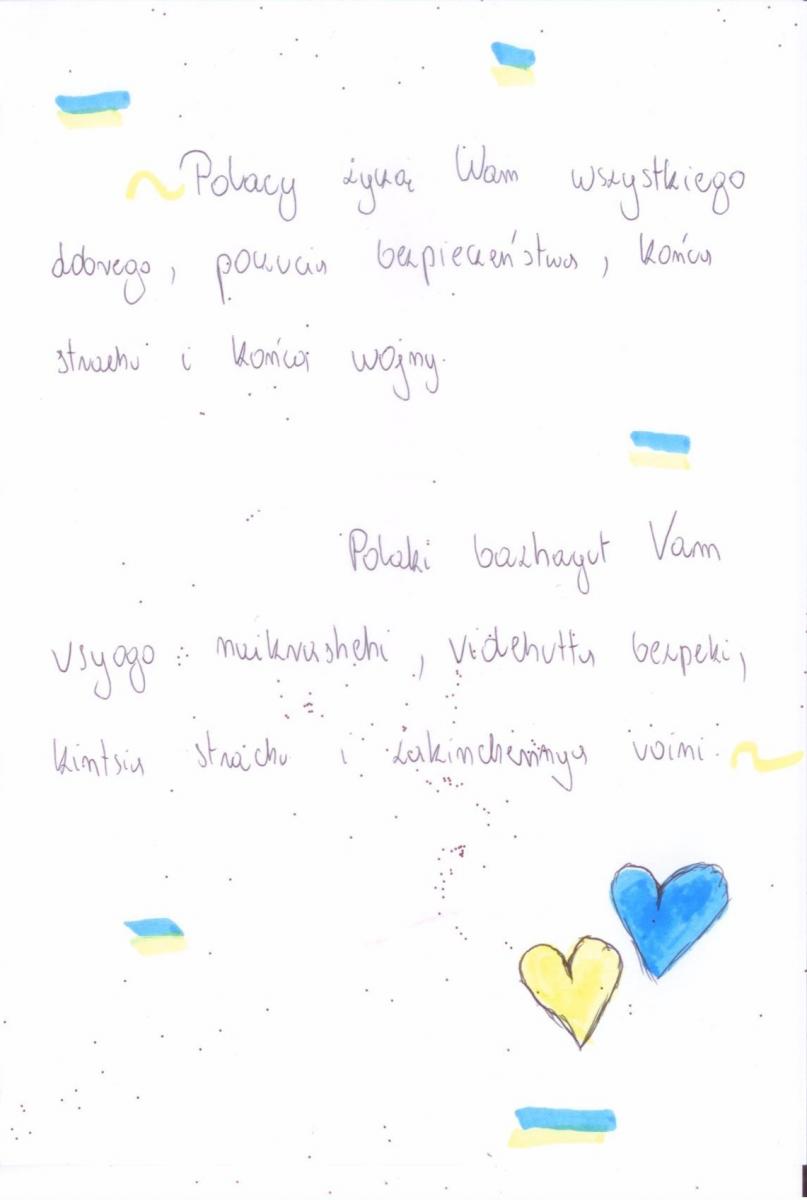 ~Polacy życzą Wam wszystkiego
dobrego, poczucia bezpieczeństwa, końca
strachu i końca wojny.
Polaki bazhayut Vam
vsyogo naikrashchi, vidchutta bezpeki,
kintsia strachu i zakinchennya voini.~